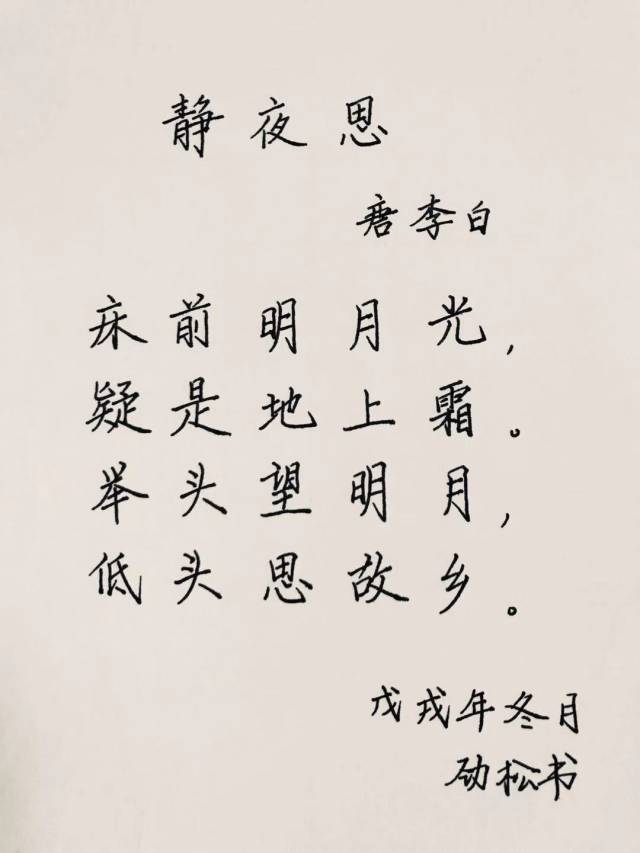 静夜思
唐李白
床前明月光,
疑是地上霜。
举头望明月,
低头思故乡。
戊戌年冬月
劲松书